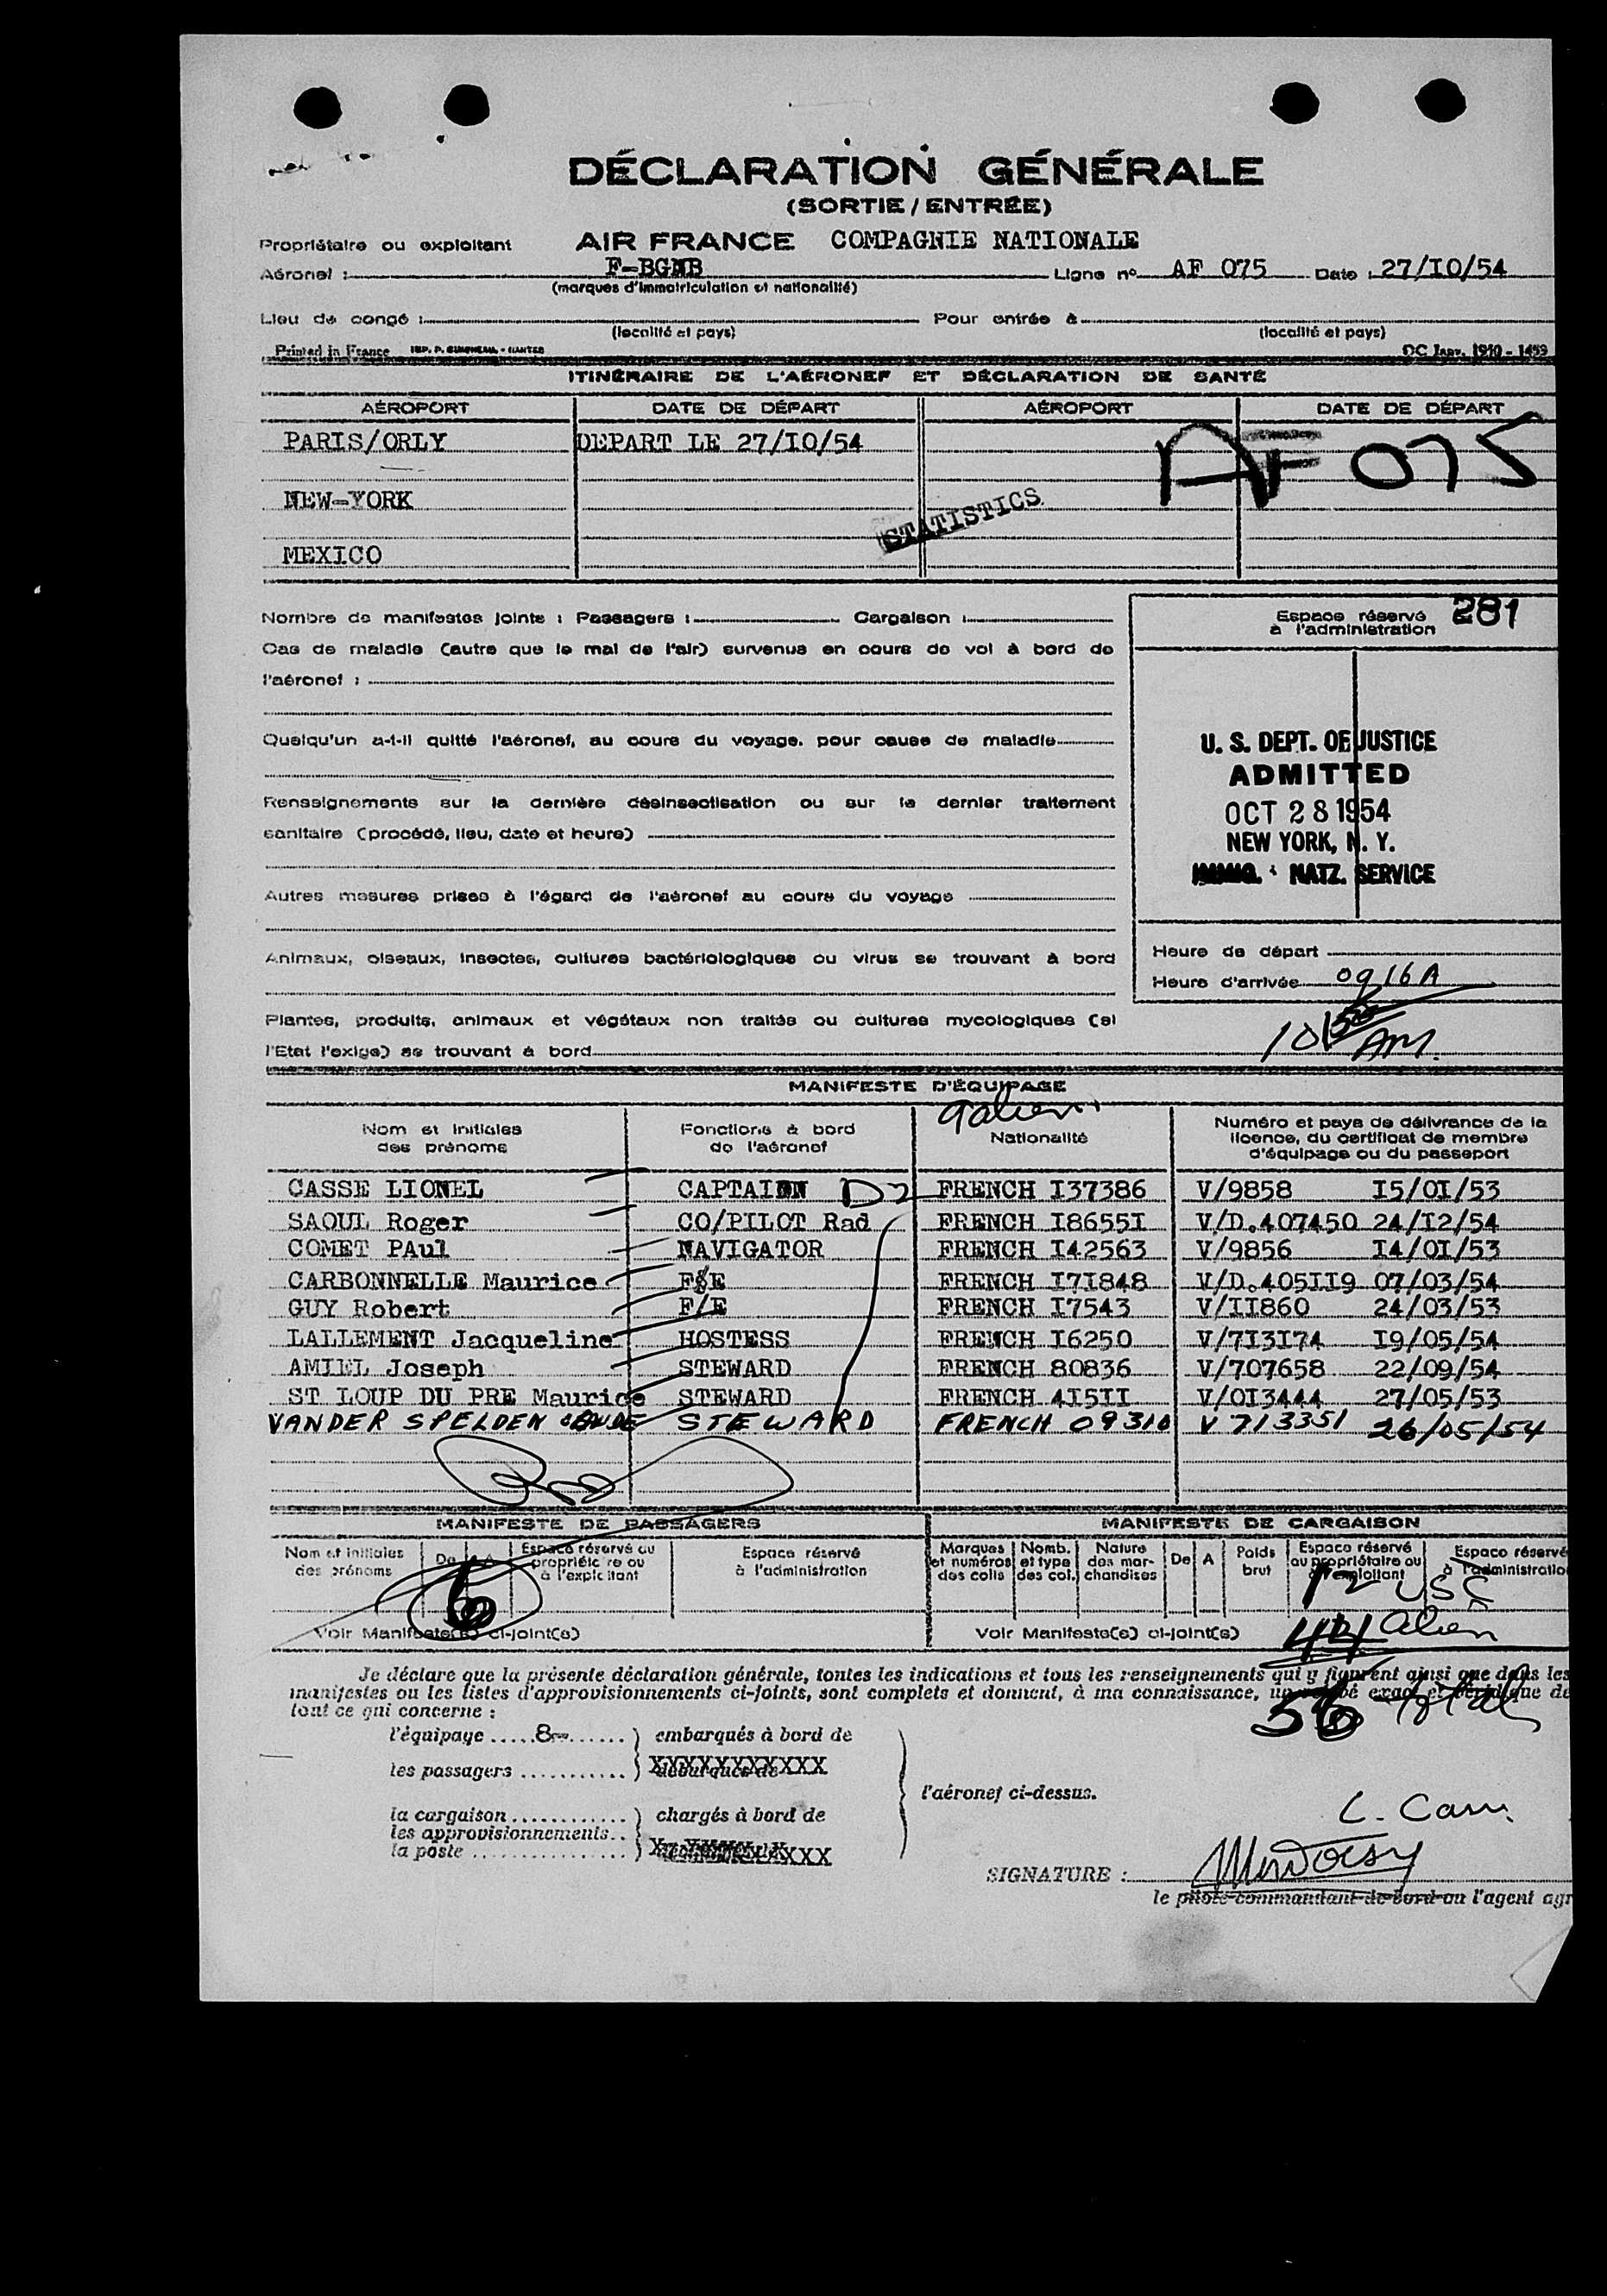 DÉCLARATION GÉNÉRALE
(SORTIE / ENTRÉE)
Propriétaire ou exploitant AIR FRANCE COMPAGNIE NATIONALE
Aéronef : F-BGNB Ligne nº AF 075 Date : 27/IO/54
(marques d'immatriculation et nationalité)
Lieu de congé : Pour entrée à
(localité et pays) (localité et pays)
Printed in France
ITINÉRAIRE DE L'AÉRONEF ET DÉCLARATION DE SANTÉ
AÉROPORT DATE DE DÉPART AÉROPORT DATE DE DÉPART
PARIS/ORLY DEPART LE 27/IO/54
AF 075
NEW-YORK
STATISTICS
MEXICO
Nombre de manifestes joints : Passagers : Cargaison :
Espace réservé à l'administration 281
Cas de maladie (autre que le mal de l'air) survenus en cours de vol à bord de
l'aéronef :
Quelqu'un a-t-il quitté l'aéronef, au cours du voyage, pour cause de maladie
U. S. DEPT. OF JUSTICE
ADMITTED
OCT 28 1954
NEW YORK, N. Y.
IMMIG. & NATZ. SERVICE
Renseignements sur la dernière désinsectisation ou sur le dernier traitement
sanitaire (procédé, lieu, date et heure)
Autres mesures prises à l'égard de l'aéronef au cours du voyage
Animaux, oiseaux, insectes, cultures bactériologiques ou virus se trouvant à bord
Heure de départ
Heure d'arrivée 0916A
Plantes, produits, animaux et végétaux non traités ou cultures mycologiques (si
l'Etat l'exige) se trouvant à bord
AM.
MANIFESTE D'ÉQUIPAGE
9 alien
Nom et initiales des prénoms
Fonctions à bord de l'aéronef
Nationalité
Numéro et pays de délivrance de la licence, du certificat de membre d'équipage ou du passeport
CASSE LIONEL CAPTAION D2 FRENCH I37386 V/9858 I5/OI/53
SAOUL Roger CO/PILOT Rad FRENCH I8655I V/D.407450 24/I2/54
COMET PAul NAVIGATOR FRENCH I42563 V/9856 I4/OI/53
CARBONNELLE Maurice F/E FRENCH I7I848 V/D.405II9 07/03/54
GUY Robert F/E FRENCH I7543 V/II860 24/03/53
LALLEMENT Jacqueline HOSTESS FRENCH I6250 V/7I3I74 I9/05/54
AMIEL Joseph STEWARD FRENCH 80836 V/707658 22/09/54
ST LOUP DU PRE Maurice STEWARD FRENCH 4I5II V/OI3444 27/05/53
VANDER SPELDEN STEWARD FRENCH 09310 V 713351 26/05/54
MANIFESTE DE PASSAGERS MANIFESTE DE CARGAISON
Nom et initiales des prénoms
De A
Espace réservé au propriétaire ou à l'exploitant
Espace réservé à l'administration
Marques et numéros des colis
Nomb. et type des col.
Nature des marchandises
De A
Poids brut
Espace réservé au propriétaire ou à l'exploitant
Espace réservé à l'administration
12 USC
Voir Manifeste(s) ci-joint(s) Voir Manifeste(s) ci-joint(s)
44 alien
56 total
Je déclare que la présente déclaration générale, toutes les indications et tous les renseignements qui y figurent ainsi que dans les
manifestes ou les listes d'approvisionnements ci-joints, sont complets et donnent, à ma connaissance, un exposé exact et véridique de
tout ce qui concerne :
l'équipage ..... 8 ...... ) embarqués à bord de
les passagers ............ ) XXXXXXXXXXX
l'aéronef ci-dessus.
la cargaison ............. ) chargés à bord de
les approvisionnements..
la poste ................. )
SIGNATURE :
le pilote commandant de bord ou l'agent agr